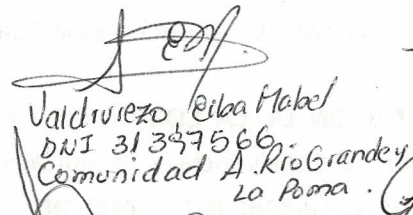 Valdiviezo Elba Mabel
DNI 31347566
Comunidad A. Rio Grande y
La Poma.